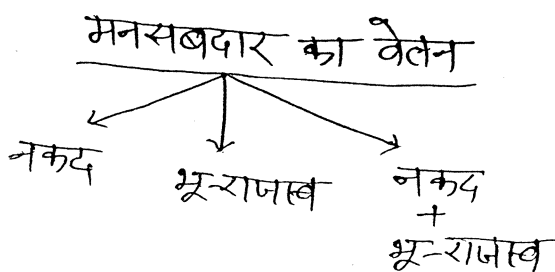 मनसबदार का वेतन
नकद
भू-राजस्व
नकद
+
भू-राजस्व